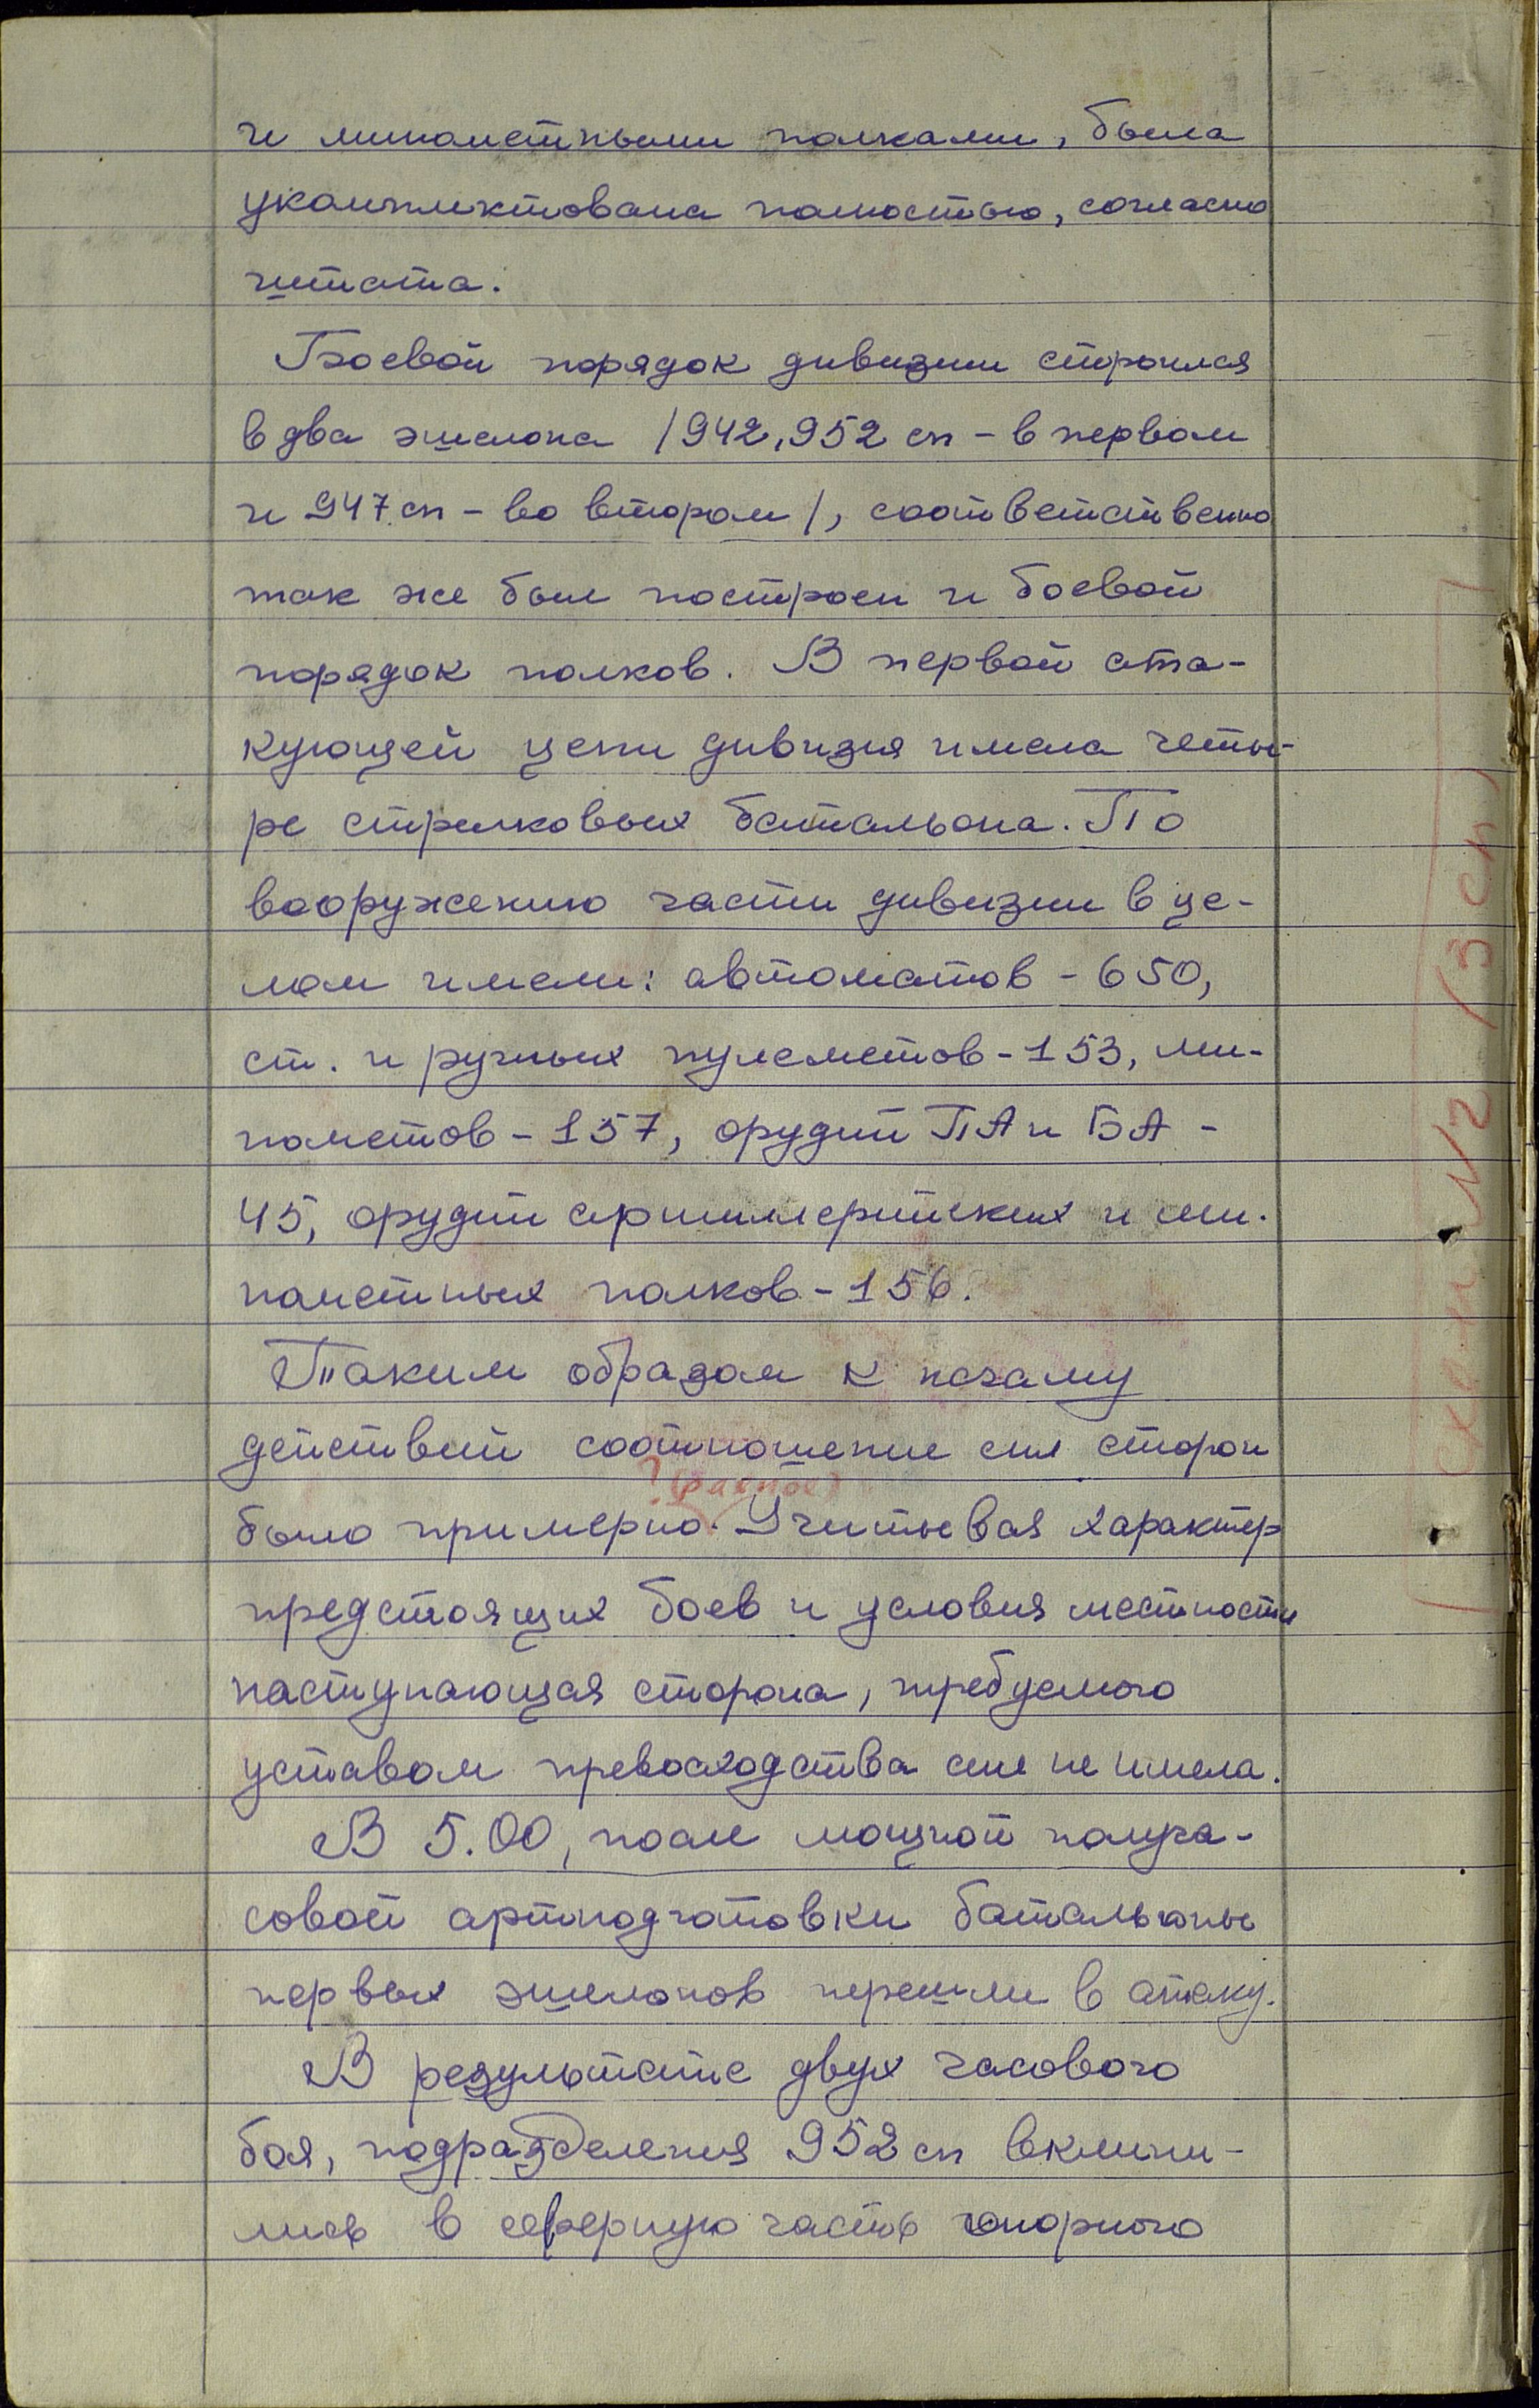 и минометными полками, была
укомплектована полностью, согласно
штата.
Боевой порядок дивизии строился
в два эшелона /942, 952 сп - в первом
и 947 сп - во втором/, соответственно
так же был построен и боевой
порядок полков. В первой ата-
кующей цепи дивизия имела четы-
ре стрелковых батальона. По
вооружению части дивизии в це-
лом имели: автоматов - 650,
ст. и ручных пулеметов - 153, ми-
нометов - 157, орудий ПА и БА -
45, орудий артиллерийских и ми-
нометных полков - 156.
Таким образом к началу
действий соотношение сил сторон
? (равное)
было примерно. Учитывая характер
предстоящих боев и условия местности
наступающая сторона, требуемого
уставом превосходства сил не имела.
В 5.00, после мощной получа-
совой артподготовки батальоны
первых эшелонов перешли в атаку.
В результате двух часового
боя, подразделения 952 сп вклини-
лись в северную часть опорного